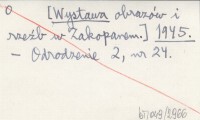 [Wystawa obrazów i
rzeźb w Zakopanem.] 1945.
— Odrodzenie 2, nr 24.